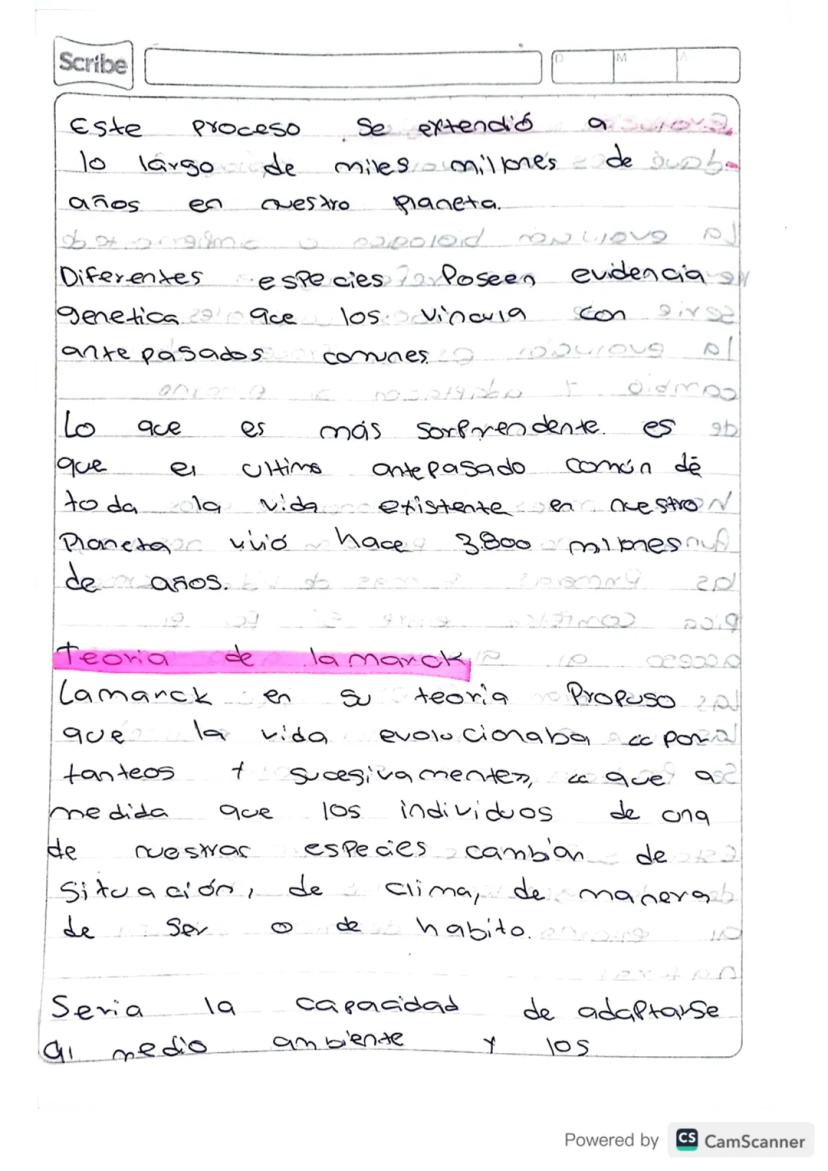 Scribe
D M A
Este proceso se extendió a
lo largo de miles millones de
años en nuestro planeta.
Diferentes especies Poseen evidencia
genetica que los vincula con
antepasados comunes
Lo que es más sorprendente. es
que el ultimo antepasado común de
toda la vida existente en nuestro
Planeta vivió hace 3.800 millones
de años.
Teoria de lamarck
Lamarck en su teoría Propuso
que la vida evolucionaba «por
tanteos y sucesivamente», «que a
medida que los individuos de una
de nuestras especies cambian de
situación, de clima, de manera
de ser o de habito.
Seria la capacidad de adaptarse
al medio ambiente y los
Powered by CS CamScanner